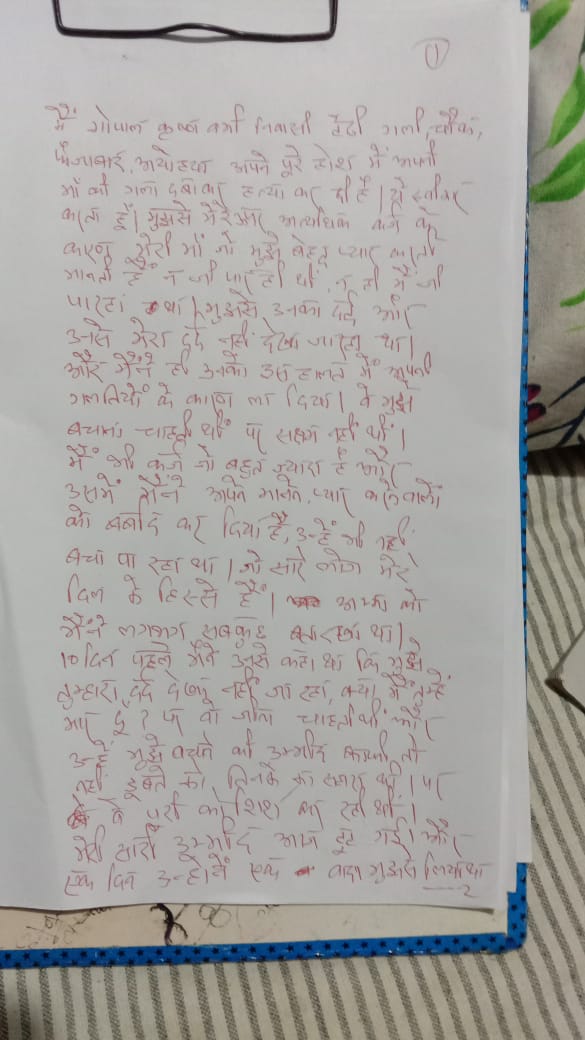 (1)
मैं गोपाल कृष्ण वर्मा निवासी टेढी गली, चौक,
फैजाबाद, अयोध्या अपने पूरे होश में अपनी
माँ की गला दबाकर हत्या कर दी है। ये स्वीकार
करता हूँ। मुझसे मेरे अत्यधिक कर्ज के
कारण मेरी माँ जो मुझे बेहद प्यार करती
मानती हैं न जी पा रही थीं, न ही मैं जी
पा रहा था। मुझसे उनका दर्द और
उनसे मेरा दर्द नहीं देखा जाता था।
और मैंने ही उनको इस हालत में अपनी
गलतियों के कारण ला दिया। वे मुझे
बचाना चाहती थीं पर सक्षम नहीं थीं।
मैं भी कर्ज जो बहुत ज्यादा है और
उसमें मैंने अपने मानने, प्यार करने वालों
को बर्बाद कर दिया है, उन्हें भी नहीं
बचा पा रहा था। जो सारे लोग मेरे
दिल के हिस्से हैं। को
मैंने लगभग सबकुछ बता रखा था।
10 दिन पहले मैंने उनसे कहा था कि मुझसे
तुम्हारा दर्द देखा नहीं जा रहा, क्या मैं तुम्हें
मार दूँ? पर वो जीना चाहती थीं और
उन्हें मुझे बचने की उम्मीद काफी तो
नहीं डूबते को तिनके का सहारा थी। पर
वे पूरी कोशिश कर रही थीं।
मेरी सारी उम्मीद आज टूट गई। और
एक दिन उन्होंने एक वादा मुझसे लिया था
2